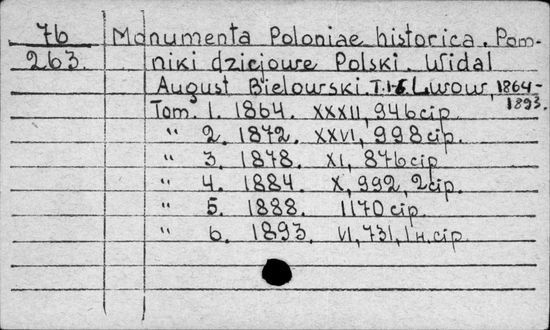 76 Monumenta Poloniae historica. Pom-
263. niki dziejowe Polski. Widal
August Bielowski. T.1-6 Lwow, 1864-
1893.
Tom. 1. 1864. XXXII, 946 cip.
" 2. 1872. XXVI, 998 cip.
" 3. 1878. XI, 876 cip
" 4. 1884. X, 992, 2 cip.
" 5. 1888. 1170 cip.
" 6. 1893. VI, 731, 1 н. cip.